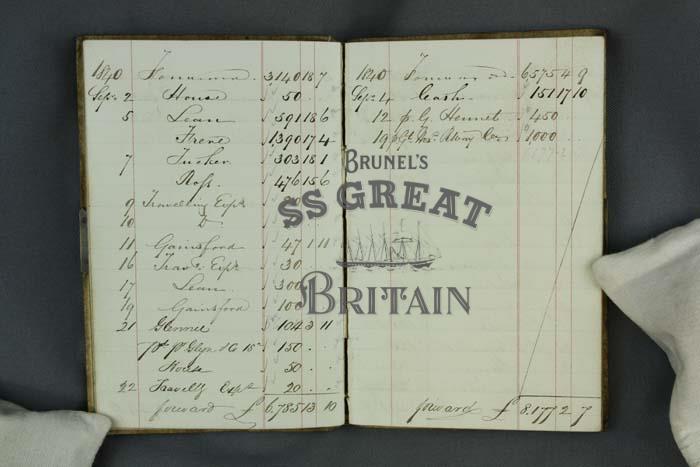 1840 Forward 3140 18 7
Sepr 2 House 50 . .
5 Lean 591 18 6
Frere 1390 17 4
7 Tucker 303 18 1
Ross 476 15 6
9 Travelling Exps
10 Do
11 Gainsford 47 1 11
16 Travg Exps 30
17 Lean 300
19 Gainsford 100
21 Glennie 104 3 11
pd Glyn & Co 150 . .
House 50 . .
22 Travellg Exps 20 . .
forward £ 6,785 13 10
1840 Forward 6,575 4 9
Sepr 4 Cash 151 17 10
12 G. Hennet 450
19 Gt Wes Rlway Co 1,000 . .
forward £ 8,177 2 7
BRUNEL'S
SS GREAT
BRITAIN